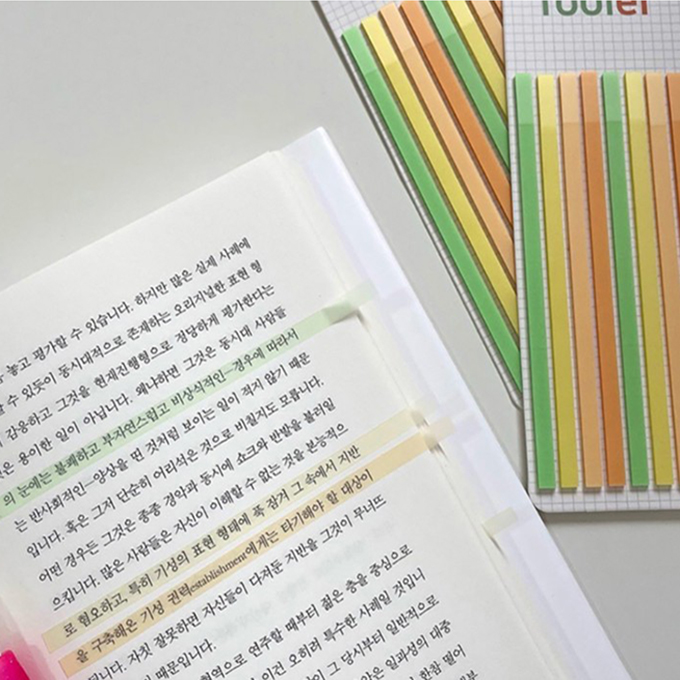 놓고 평가할 수 있습니다. 하지만 많은 실제 사례에
수 있듯이 동시대적으로 존재하는 오리지널한 표현 형
감응하고 그것을 현재진행형으로 정당하게 평가한다는
은 용이한 일이 아닙니다. 왜냐하면 그것은 동시대 사람들
의 눈에는 불쾌하고 부자연스럽고 비상식적인—경우에 따라서
는 반사회적인—양상을 띤 것처럼 보이는 일이 적지 않기 때문
입니다. 혹은 그저 단순히 어리석은 것으로 비칠지도 모릅니다.
어떤 경우든 그것은 종종 경악과 동시에 쇼크와 반발을 불러일
으킵니다. 많은 사람들은 자신이 이해할 수 없는 것을 본능적으
로 혐오하고, 특히 기성의 표현 형태에 푹 잠겨 그 속에서 지반
을 구축해온 기성 권력establishment에게는 타기해야 할 대상이
됩니다. 자칫 잘못하면 자신들이 다져둔 지반을 그것이 무너뜨
때문입니다.
현역으로 연주할 때부터 젊은 층을 중심으로
이건 오히려 특수한 사례일 것입니
그 당시부터 일반적으로
은 일과성의 대중
한참 떨어